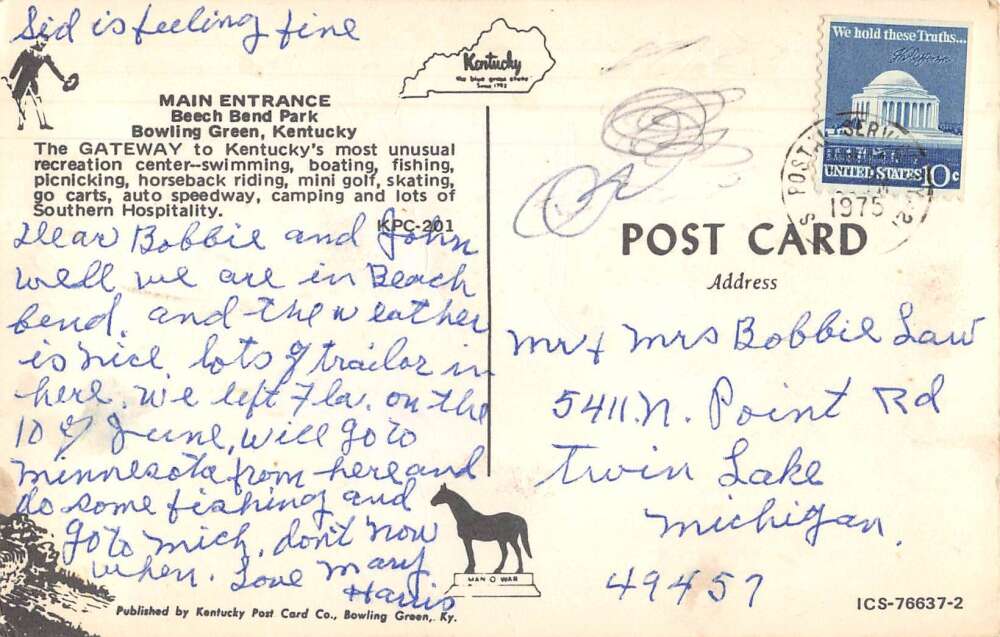 Sid is feeling fine
Kentucky
the blue grass state
Since 1792
MAIN ENTRANCE
Beech Bend Park
Bowling Green, Kentucky
The GATEWAY to Kentucky's most unusual
recreation center--swimming, boating, fishing,
picnicking, horseback riding, mini golf, skating,
go carts, auto speedway, camping and lots of
Southern Hospitality.
KPC-201
Dear Bobbie and John
well we are in Beach
bend. and the weather
is nice. lots of trailor in
here. we left Fla. on the
10 of June, will go to
Minnesota from here and
do some fishing and
go to Mich. don't now
when. Love Mary
Harris
MAN O WAR
Published by Kentucky Post Card Co., Bowling Green, Ky.
We hold these Truths...
UNITED STATES 10c
POSTAL SERVICE
1975
POST CARD
Address
Mr + Mrs Bobbie Law
5411 N. Point Rd
Twin Lake
Michigan.
49457
ICS-76637-2